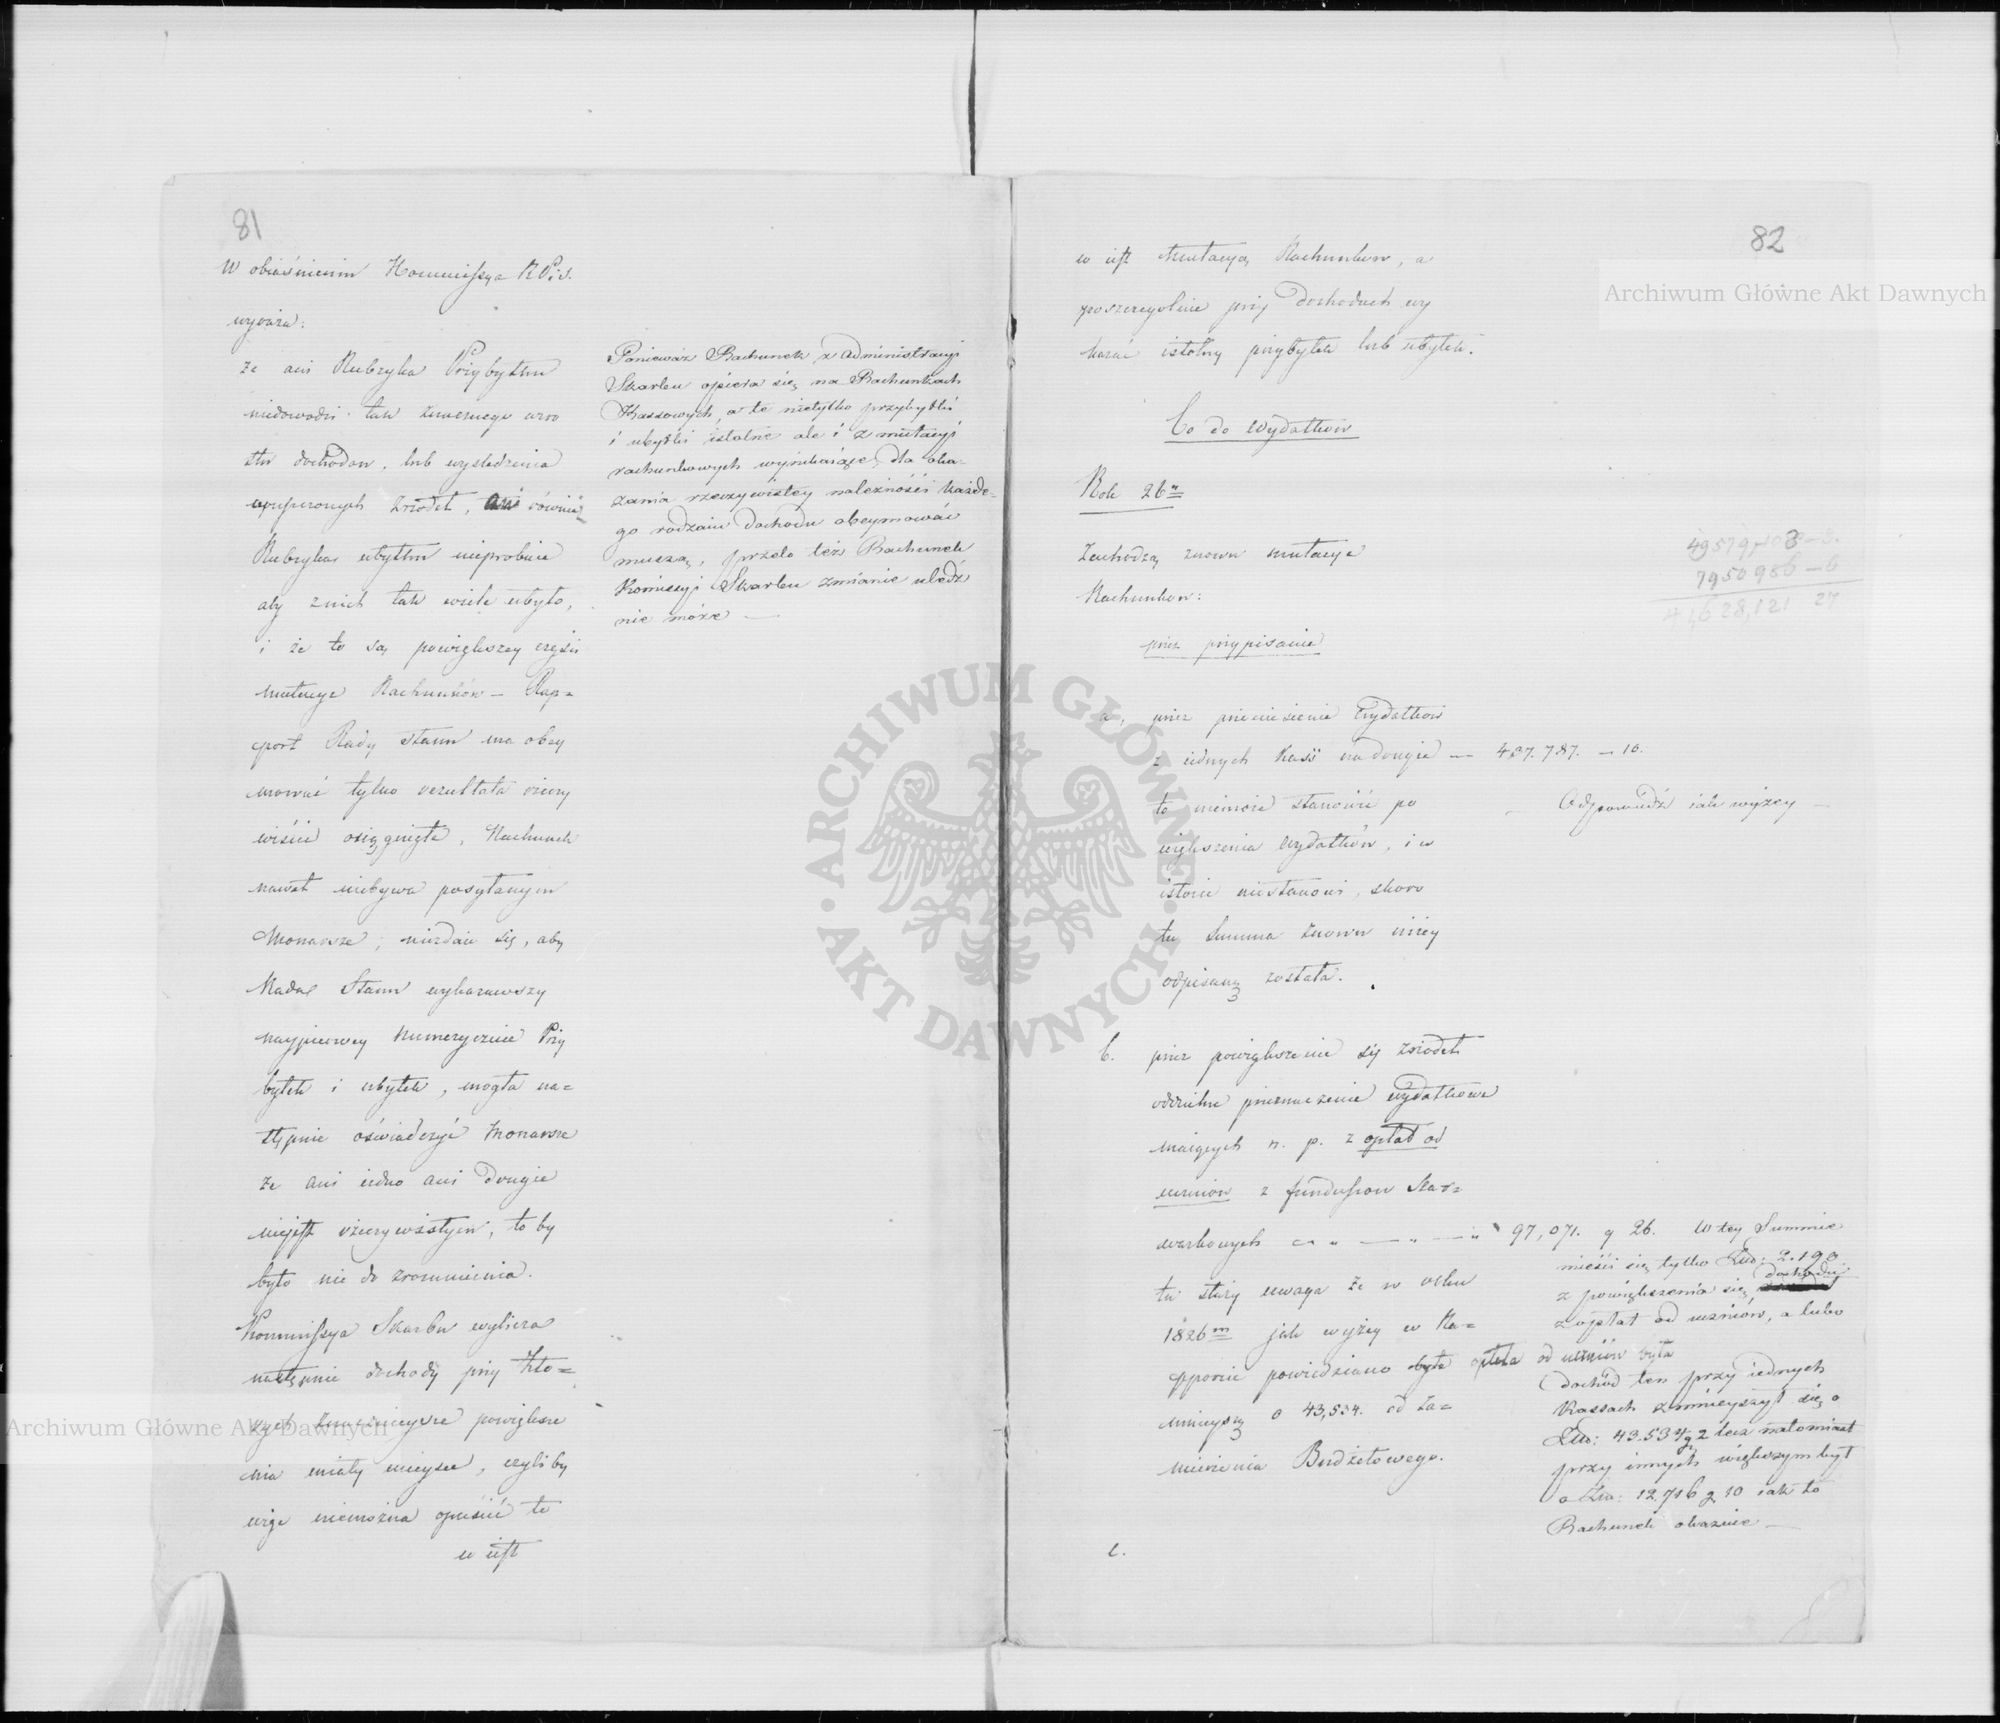 81
W obiaśnieniu Kommissya R. P. i S.
wyraża:
że ani Rubryka Przybytku
niedowodzi tak znacznego wzro
stu dochodów, lub wyśledzenia
źrzodeł, ani równie
Rubryka ubytku nieprobuie
aby znich tak wiele ubyło,
i że to są powiększey części
mutacye Rachunków — Rap=
port Rady Stanu ma obey
mować tylko rezultata rzeczy
wiście osiągnięte, Rachunek
nawet niebywa posyłanym
Monarsze; niezdaie się, aby
Rada Stanu wykazawszy
naypierwey numerycznie Przy
bytek i ubytek, mogła na=
stępnie oświadczyć Monarsze
że ani iedno ani drugie
niejest rzeczywistym, to by
było nie do zrozumienia.
Kommissya Skarbu wybiera
następnie dochody przy któ=
rych znacznieysze powiększe
nia miały mieysce, czyliby
więc niemożna opuścić to
w iest
Ponieważ Rachunek z Administracyi
Skarbu opiera się na Rachunkach
Kassowych, a te nietylko przybytki
i ubytki istotne ale i z mutacyi
rachunkowych wynikaiące, dla oka=
zania rzeczywistey należności każde=
go rodzaiu dochodu obeymować
muszą, przeto też Rachunek
Komissyi Skarbu zmianie uledz
nie może —
82
w iest Mutacyą Rachunków, a
poszczególnie przy dochodach wy
kazać istotny przybytek lub ubytek.
Co do Wydatków
Rok 26n
Zachodzą znowu mutacye
Rachunków:
przez przypisanie
7950986 — 6
41,628,121 27
a, przez przeniesienie Wydatków
z iednych Kass na drugie — 437.787. — 10.
to niemoże stanowić po
większenia Wydatków, i w
istocie niestanowi, skoro
ta Summa znowu niżey
odpisaną została.
Odpowiedź iak wyżey —
b. przez powiększenie się źrzodeł
oddzielne przeznaczenie wydatkowe
maiących n. p. z opłat od
uczniów z funduszow Skar=
warkowych — " — " — " 97,071. g 26.
tu służy uwaga że w roku
1826m jak wyżey w Ra=
pporcie powiedziano była opłata od uczniów była
mnieyszą o 43,534. od za=
mierzenia Budżetowego.
W tey Summie
mieści się tylko Złp: 2.190
z powiększenia się dochodu
z opłat od uczniów, a lubo
dochód ten przy iednych
Kassach zmnieyszył się o
Złp: 43.534 g 2 lecz natomiast
przy innych większym był
o Złp: 12,716 g 10 iak to
Rachunek okazuie —
c.
Archiwum Główne Akt Dawnych
Archiwum Główne Akt Dawnych
ARCHIWUM GŁÓWNE AKT DAWNYCH